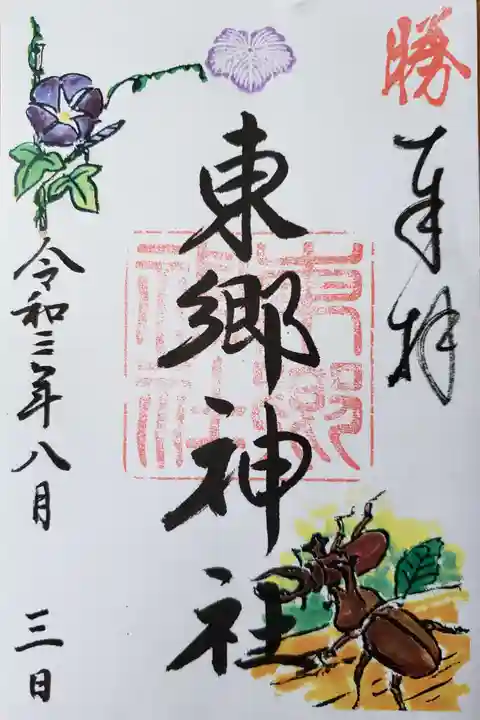 勝
奉拝
東郷神社
東郷神社
令和三年八月 三日